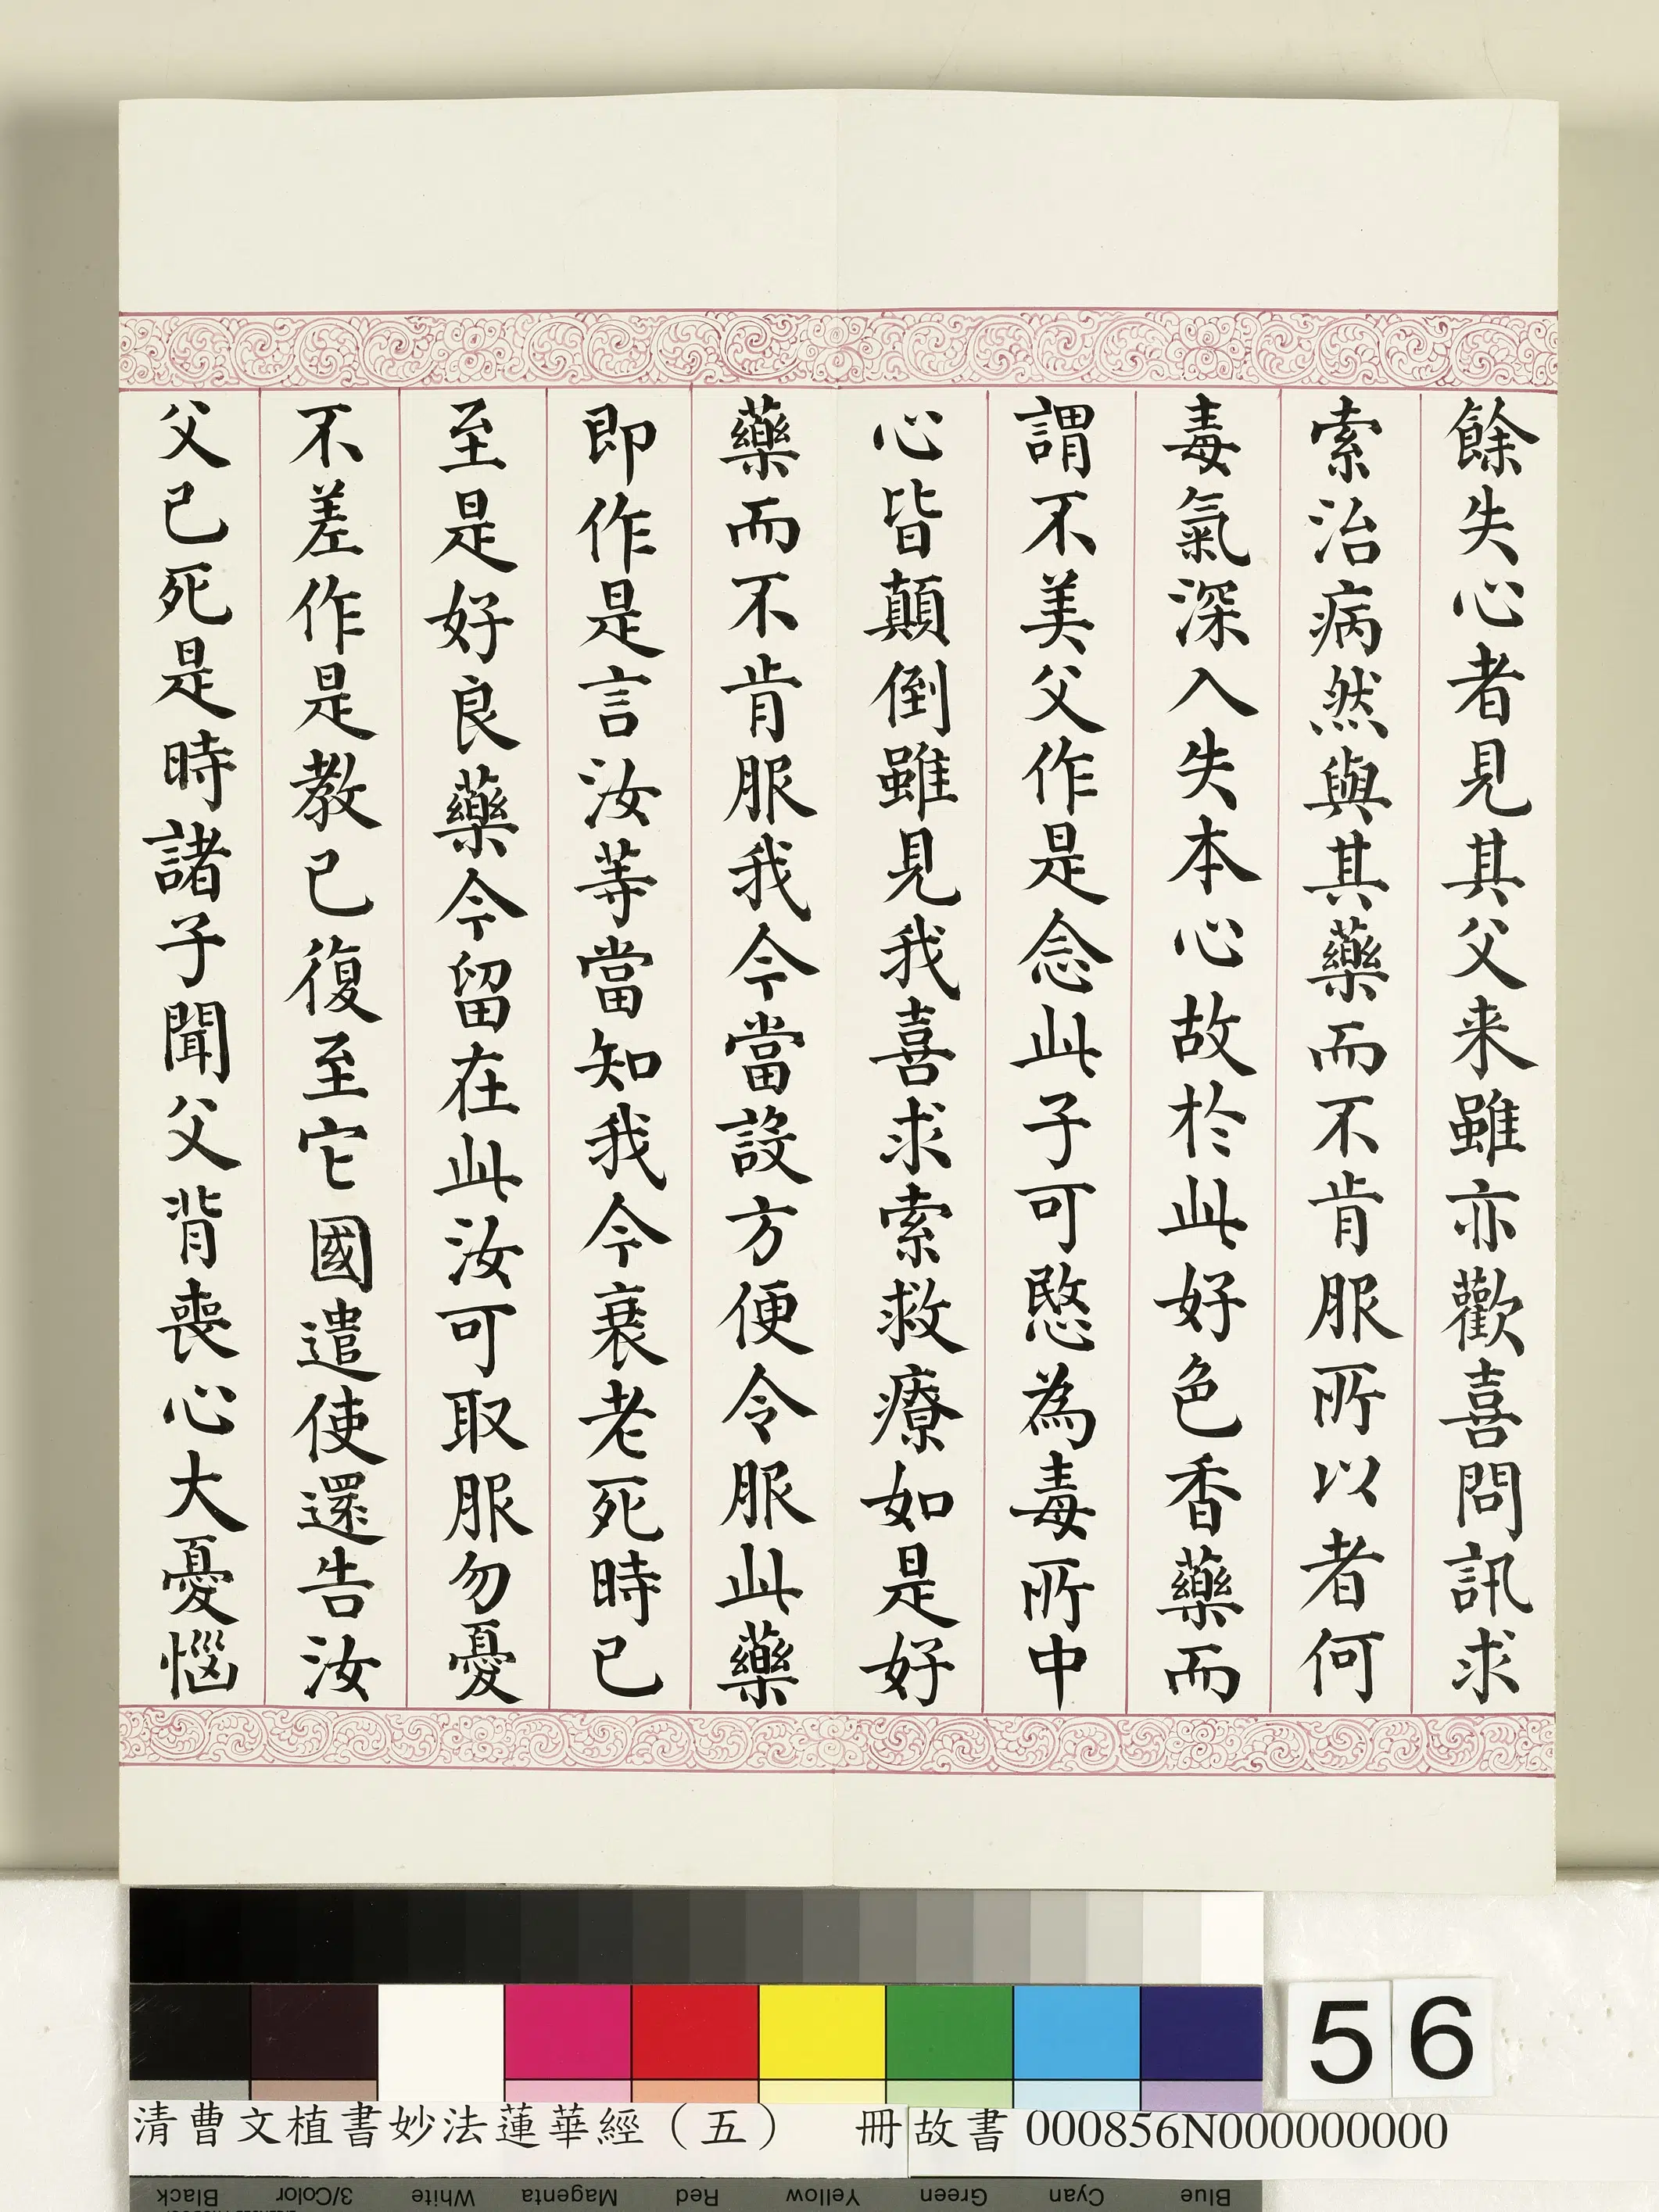 餘失心者見其父来雖亦歡喜問訊求
索治病然與其藥而不肯服所以者何
毒氣深入失本心故於此好色香藥而
謂不美父作是念此子可愍為毒所中
心皆顛倒雖見我喜求索救療如是好
藥而不肯服我今當設方便令服此藥
即作是言汝等當知我今衰老死時已
至是好良藥今留在此汝可取服勿憂
不差作是教已復至它國遣使還告汝
父已死是時諸子聞父背喪心大憂惱
56
清曹文植書妙法蓮華經（五） 冊 故書 000856N000000000
Black 3/Color White Magenta Red Yellow Green Cyan Blue